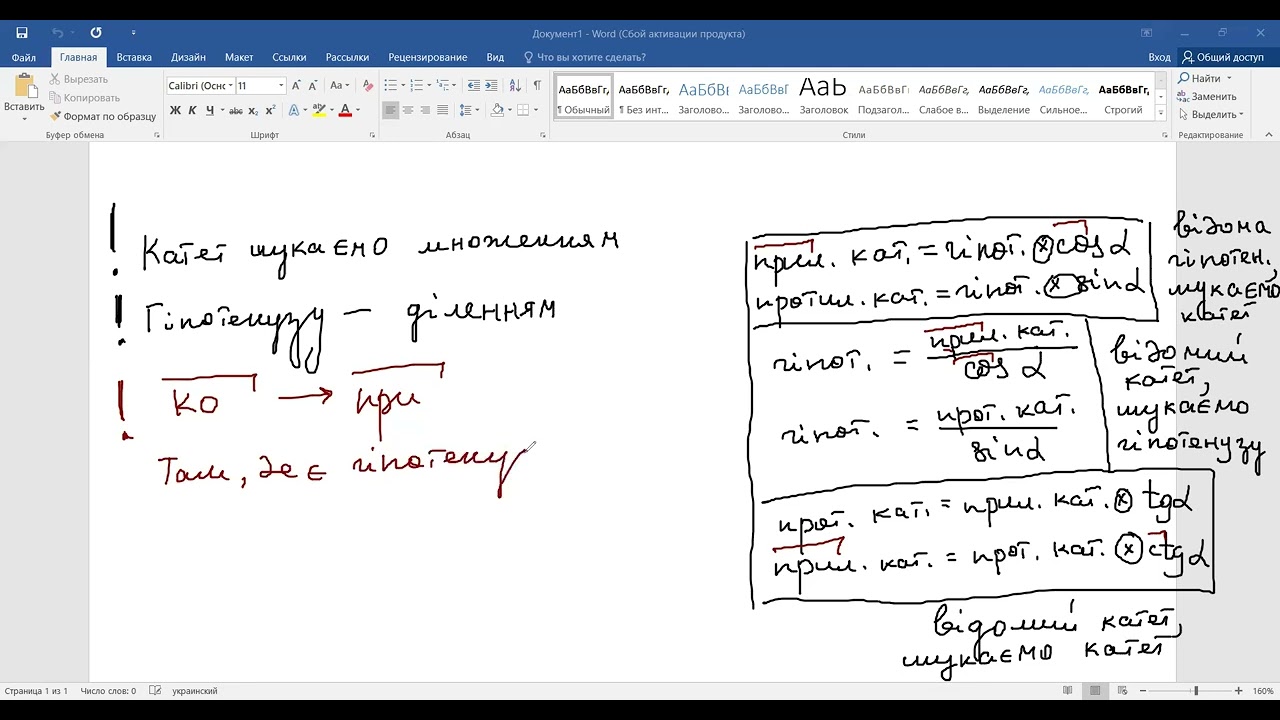 Документ1 - Word (Сбой активации продукта)
Файл Главная Вставка Дизайн Макет Ссылки Рассылки Рецензирование Вид Что вы хотите сделать? Вход Общий доступ
Вставить
Вырезать
Копировать
Формат по образцу
Буфер обмена
Calibri (Оснс 11
Ж К Ч abc x₂ x²
Шрифт
Абзац
АаБбВвГг, АаБбВвГг, АаБбВв АаБбВвГ АаЬ АаБбВвГг АаБбВвГг, АаБбВвГг, АаБбВвГг, АаБбВвГг,
¶ Обычный ¶ Без инт... Заголово... Заголово... Заголовок Подзагол... Слабое в... Выделение Сильное... Строгий
Стили
Найти
Заменить
Выделить
Редактирование
! Катет шукаємо множенням
! Гіпотенузу — діленням
! ко → при
Там, де є гіпотену
прил. кат. = гіпот. × cos α
протил. кат. = гіпот. × sin α
відома
гіпотен.,
шукаємо
катет
гіпот. = прил. кат. / cos α
гіпот. = прот. кат. / sin α
відомий
катет,
шукаємо
гіпотенузу
прот. кат. = прил. кат. × tg α
прил. кат. = прот. кат. × ctg α
відомий катет,
шукаємо катет
Страница 1 из 1 Число слов: 0 украинский 160%